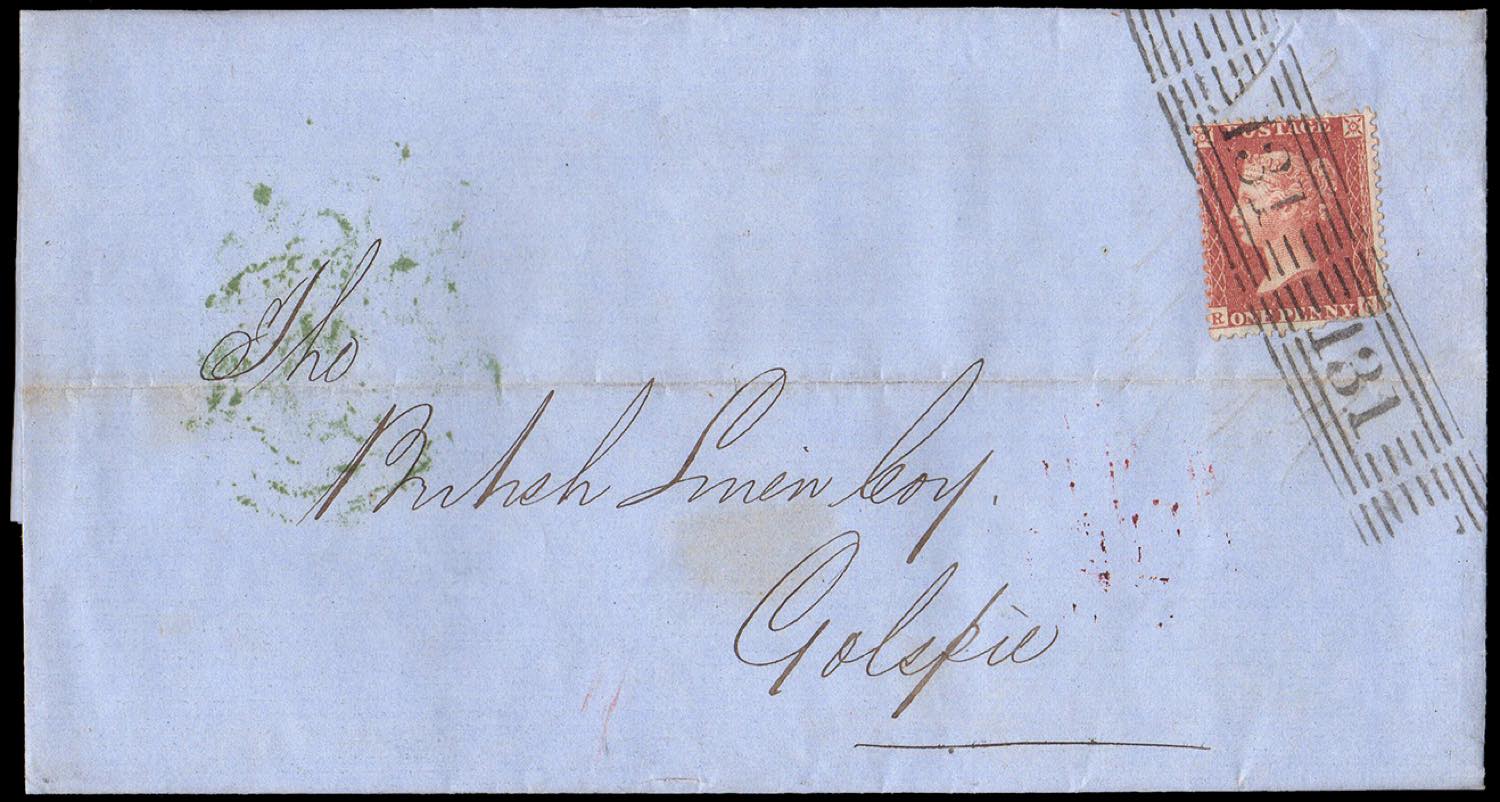 The
British Linen Coy.
Golspie
POSTAGE
R ONE PENNY
131
131